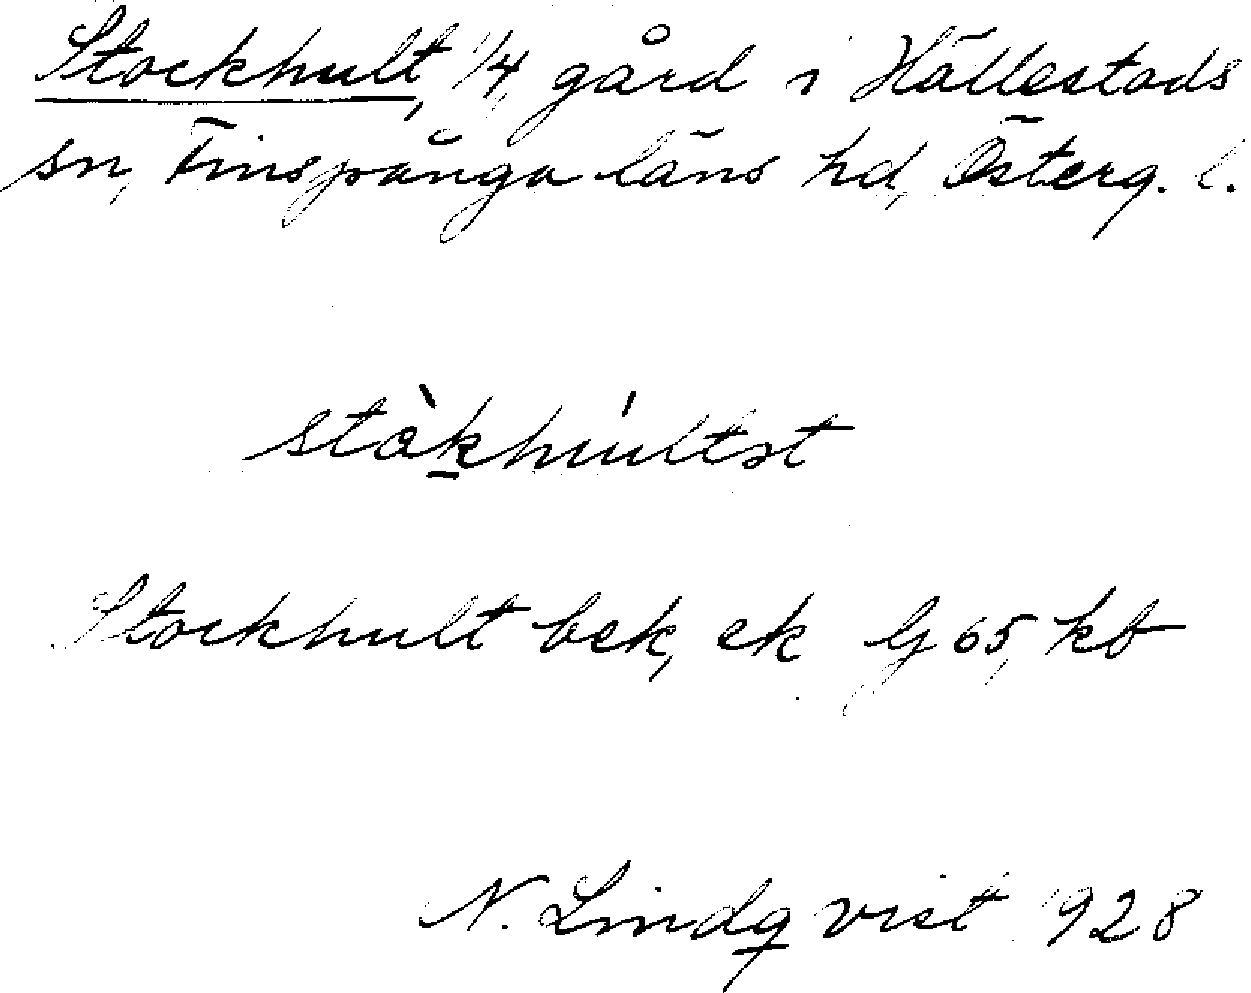 Stockhult, 1/4, gård i Hällestads
sn, Finspånga läns hd, Österg. l.
stàk̲húltət
Stockhult bek, ek G 65, kb
N. Lindqvist 1928